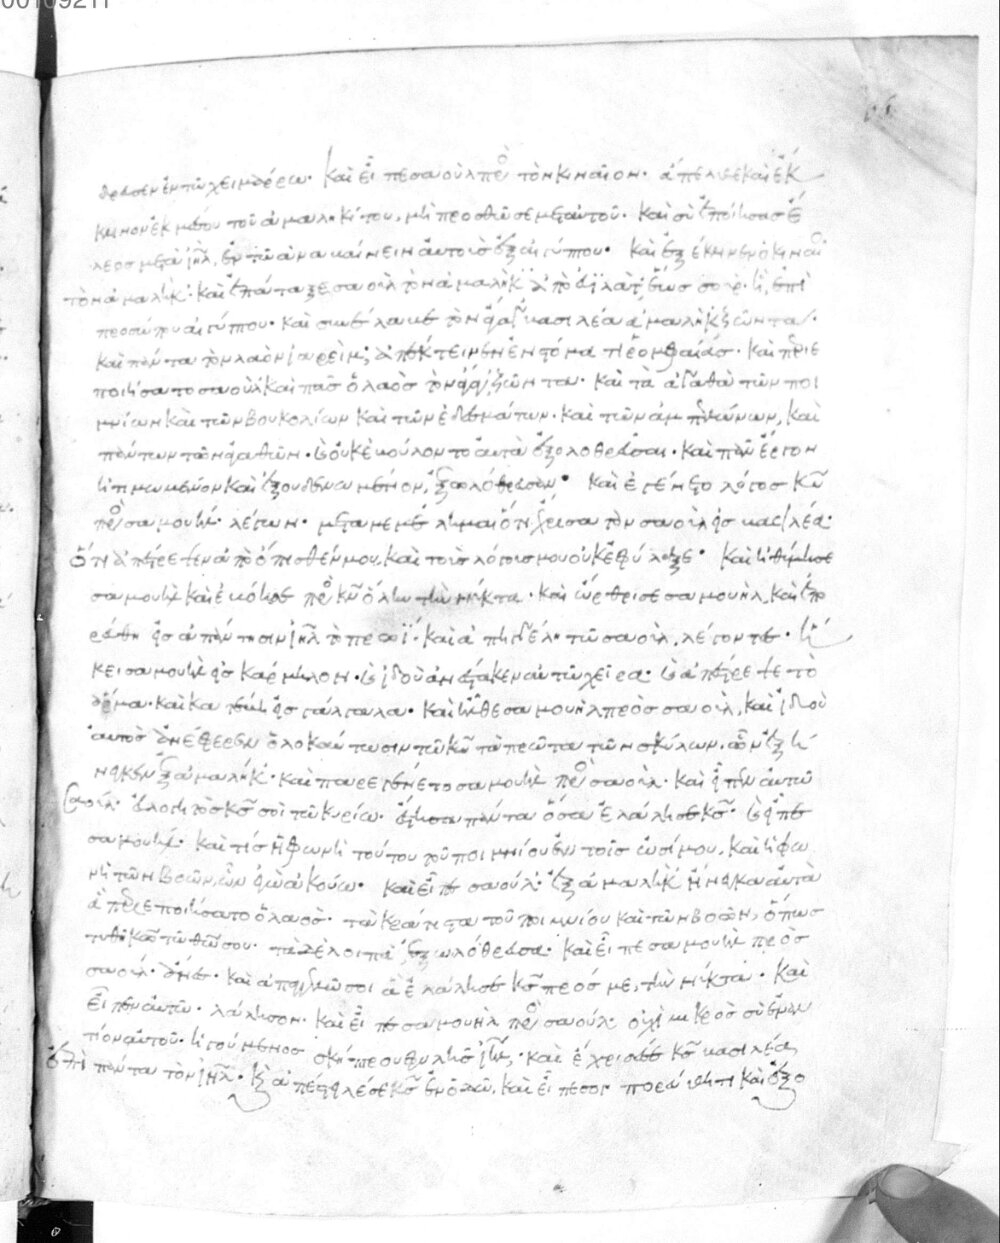 00109211
δρευσεν ἐν τῶ χειμάρρω. Καὶ εἶπε σαοὺλ πρὸς τὸν κιναῖον. ἄπελθε καὶ ἔκ
κλινον ἐκ μέσου τοῦ ἀμαληκίτου, μὴ προσθῶ σε μετ' αὐτοῦ. καὶ σὺ ἐποίησας ἔ
λεος μετὰ ἰηλ, ἐν τῶ ἀναβαίνειν αὐτοὺς ἐξ αἰγύπτου. καὶ ἐξέκλινεν ὁ κιναῖ
τὸν ἀμαλήκ. καὶ ἐπάταξε σαοὺλ τὸν ἀμαλὴκ ἀπὸ εὐϊλὰτ ἕως σούρ. ἐπὶ
προσώπου αἰγύπτου. καὶ συνέλαβε τὸν ἀγὰγ βασιλέα ἀμαλὴκ ζῶντα.
καὶ πάντα τὸν λαὸν ἱαρεὶμ ἀπέκτεινεν ἐν στόματι ῥομφαίας. καὶ περιε
ποιήσατο σαοὺλ καὶ πᾶς ὁ λαὸς τὸν ἀγὰγ ζῶντα. καὶ τὰ ἀγαθὰ τῶν ποι
μνίων καὶ τῶν βουκολίων καὶ τῶν ἐδεσμάτων. καὶ τῶν ἀμπελώνων, καὶ
πάντων τῶν ἀγαθῶν. καὶ οὐκ ἐβούλοντο αὐτὰ ἐξολοθρεῦσαι. καὶ πᾶν ἔργον
ἠτιμωμένον καὶ ἐξουδενωμένον, ἐξωλόθρευσαν. καὶ ἐγένετο λόγος κυ
πρὸς σαμουήλ. λέγων. μεταμεμέλημαι ὅτι ἔχρισα τὸν σαοὺλ εἰς βασιλέα.
ὅτι ἀπέστρεψεν ἀπὸ ὄπισθέν μου, καὶ τοὺς λόγους μου οὐκ ἐφύλαξε. καὶ ἠθύμησε
σαμουὴλ καὶ ἐβόησε πρὸς κν ὅλην τὴν νύκτα. καὶ ὤρθρισε σαμουὴλ, καὶ ἐπο
ρεύθη εἰς ἀπάντησιν ιηλ τὸ πρωΐ. καὶ ἀπηγγέλη τῶ σαοὺλ, λέγοντες. ἥ
κει σαμουὴλ εἰς κάρμηλον. καὶ ἰδοὺ ἀνέστακεν αὐτῶ χεῖρα. καὶ ἀπέστρεψε τὸ
ἅρμα. καὶ κατέβη εἰς γάλγαλα. καὶ ἦλθε σαμουὴλ πρὸς σαοὺλ, καὶ ἰδοὺ
αὐτὸς ἀνέφερεν ὁλοκαύτωσιν τῶ κω τὰ πρῶτα τῶν σκύλων. ὧν ἤ
νεγκεν ἐξ ἀμαλήκ. καὶ παρεγένετο σαμουὴλ πρὸς σαοὺλ. καὶ εἶπεν αὐτῶ
σαοὺλ. εὐλογητὸς σὺ τῶ κυρίω. ἔστησα πάντα ὅσα ἐλάλησε κς. καὶ εἶπε
σαμουὴλ. καὶ τίς ἡ φωνὴ τούτου τοῦ ποιμνίου ἐν τοῖς ὠσί μου. καὶ ἡ φω
νὴ τῶν βοῶν, ὧν ἐγὼ ἀκούω. καὶ εἶπε σαούλ. ἐξ ἀμαλὴκ ἤνεγκα αὐτὰ
ἃ περιεποιήσατο ὁ λαὸς. τὰ κράτιστα τοῦ ποιμνίου καὶ τῶν βοῶν, ὅπως
τυθῆ κω τῶ θεῶ σου. τὰ δὲ λοιπὰ ἐξωλόθρευσα. καὶ εἶπε σαμουὴλ πρὸς
σαοὺλ. ἄνες. καὶ ἀπαγγελῶ σοι ἃ ἐλάλησε κς πρός με, τὴν νύκτα. καὶ
εἶπεν αὐτῶ. λάλησον. καὶ εἶπε σαμουὴλ πρὸς σαούλ. οὐχὶ μικρὸς σὺ ἐνώ
πιον αὐτοῦ. ἡγούμενος σκήπτρου φυλῆς ἰηλ, καὶ ἔχρισέ σε κς βασιλέα
ἐπὶ πάντα τὸν ἰηλ. καὶ ἀπέστειλέ σε κς ἐν ὁδῶ, καὶ εἶπέ σοι πορεύθητι καὶ ἐξο